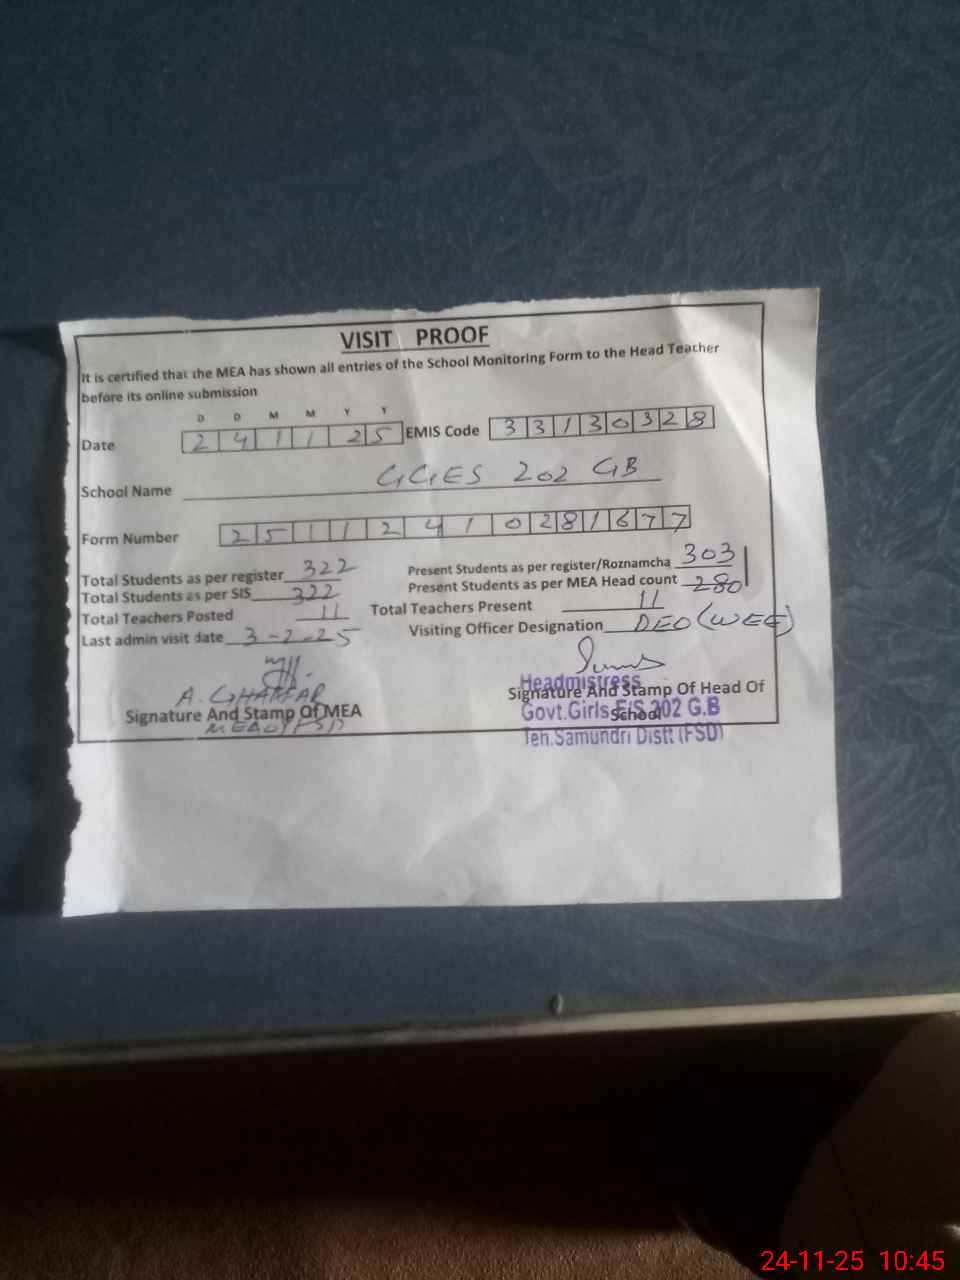 VISIT PROOF
It is certified that the MEA has shown all entries of the School Monitoring Form to the Head Teacher
before its online submission
D D M M Y Y
Date 2 4 1 1 2 5 EMIS Code 3 3 1 3 0 3 2 8
School Name GGES 202 GB
Form Number 2 5 1 1 2 4 1 0 2 8 1 6 7 7
Total Students as per register 322 Present Students as per register/Roznamcha 303
Total Students as per SIS 322 Present Students as per MEA Head count 280
Total Teachers Posted 11 Total Teachers Present 11
Last admin visit date 3-2-25 Visiting Officer Designation DEO (WEE)
A. GHAFFAR
Signature And Stamp Of MEA
MEAO FSD
Headmistress
Signature And Stamp Of Head Of
School
Govt.Girls E/S 202 G.B
Teh.Samundri Distt (FSD)
24-11-25 10:45